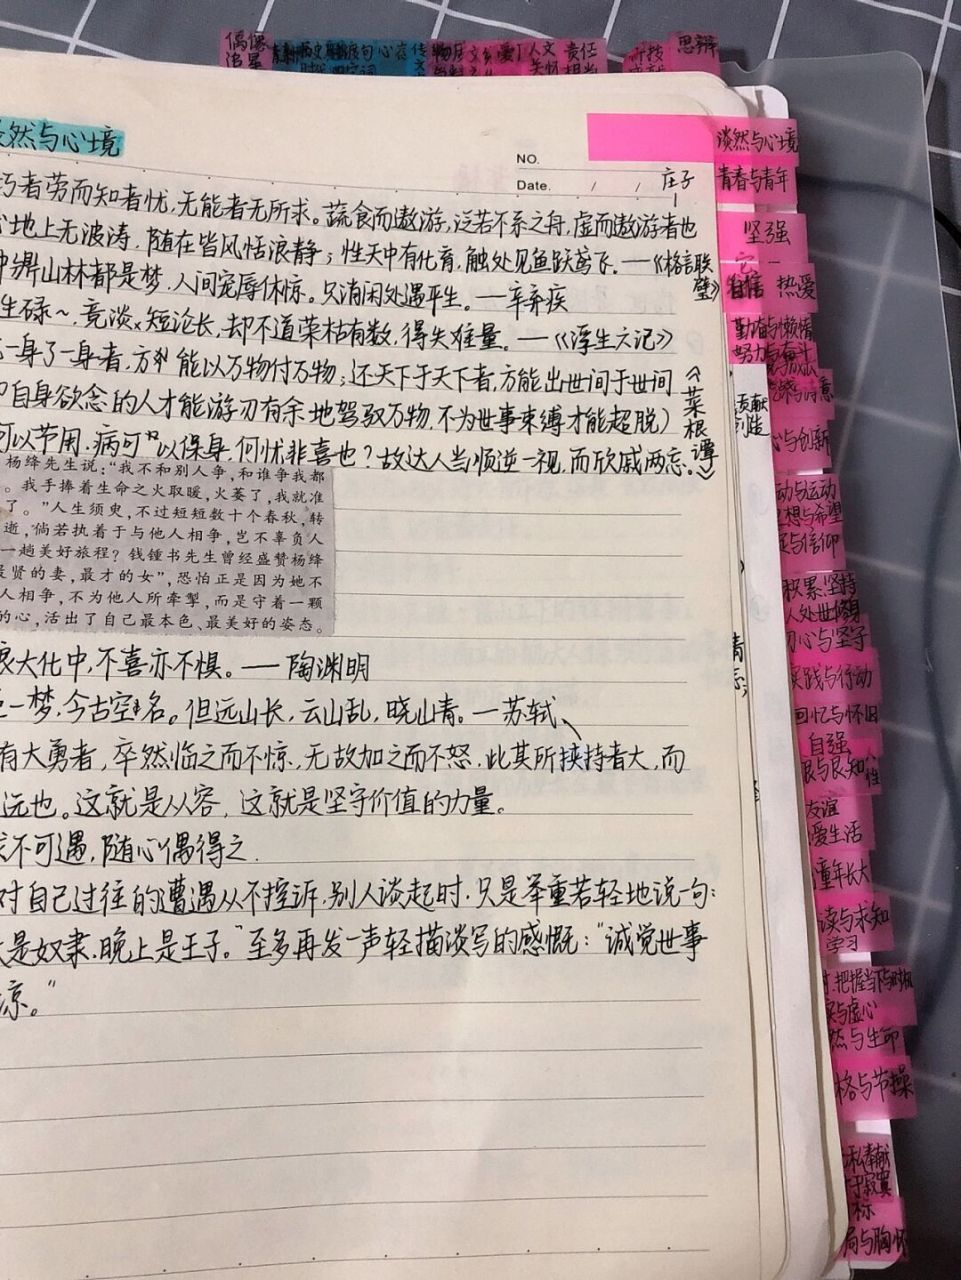 偶像
追星
历史
心态
传
人文
关怀
责任
担当
科技
思辨
淡然与心境
NO.
Date. / /
庄子
巧者劳而知者忧,无能者无所求。蔬食而遨游,泛若不系之舟,虚而遨游者也
地上无波涛,随在皆风恬浪静;性天中有化育,触处见鱼跃鸢飞。—《格言联璧》
鼎山林都是梦,人间宠辱休惊。只消闲处遇平生。—辛弃疾
生碌~,竞淡x短论长,却不道荣枯有数,得失难量。—《浮生六记》
一身了一身者,方能以万物付万物;还天下于天下者,方能出世间于世间
自身欲念的人才能游刃有余地驾驭万物,不为世事束缚才能超脱)
《菜根谭》
可以节用,病可以保身,何忧非喜也?故达人当顺逆一视,而欣戚两忘。
杨绛先生说:“我不和别人争,和谁争我都
。我手捧着生命之火取暖,火萎了,我就准
了。”人生须臾,不过短短数十个春秋,转
逝,倘若执着于与他人相争,岂不辜负人
一趟美好旅程?钱锺书先生曾经盛赞杨绛
最贤的妻,最才的女”,恐怕正是因为她不
人相争,不为他人所牵掣,而是守着一颗
的心,活出了自己最本色、最美好的姿态。
浪大化中,不喜亦不惧。—陶渊明
一梦,今古空名。但远山长,云山乱,晓山青。—苏轼
有大勇者,卒然临之而不惊,无故加之而不怒,此其所挟持者大,而
远也。这就是从容,这就是坚守价值的力量。
不可遇,随心偶得之.
对自己过往的遭遇从不控诉,别人谈起时,只是举重若轻地说一句:
是奴隶,晚上是王子。”至多再发一声轻描淡写的感慨:“诚觉世事
谅。”
淡然与心境
青春与青年
坚强
自信 热爱
勤奋与懒惰
努力与奋斗
与诗意
贡献
心与创新
动与运动
想与希望
与信仰
积累.坚持
人处世修身
初心与坚守
实践与行动
回忆与怀旧
自强
良知
友谊
爱生活
童年长大
读与求知
学习
把握当下与时机
与虚心
然与生命
格与节操
私奉献
于寂寞
标
局与胸怀